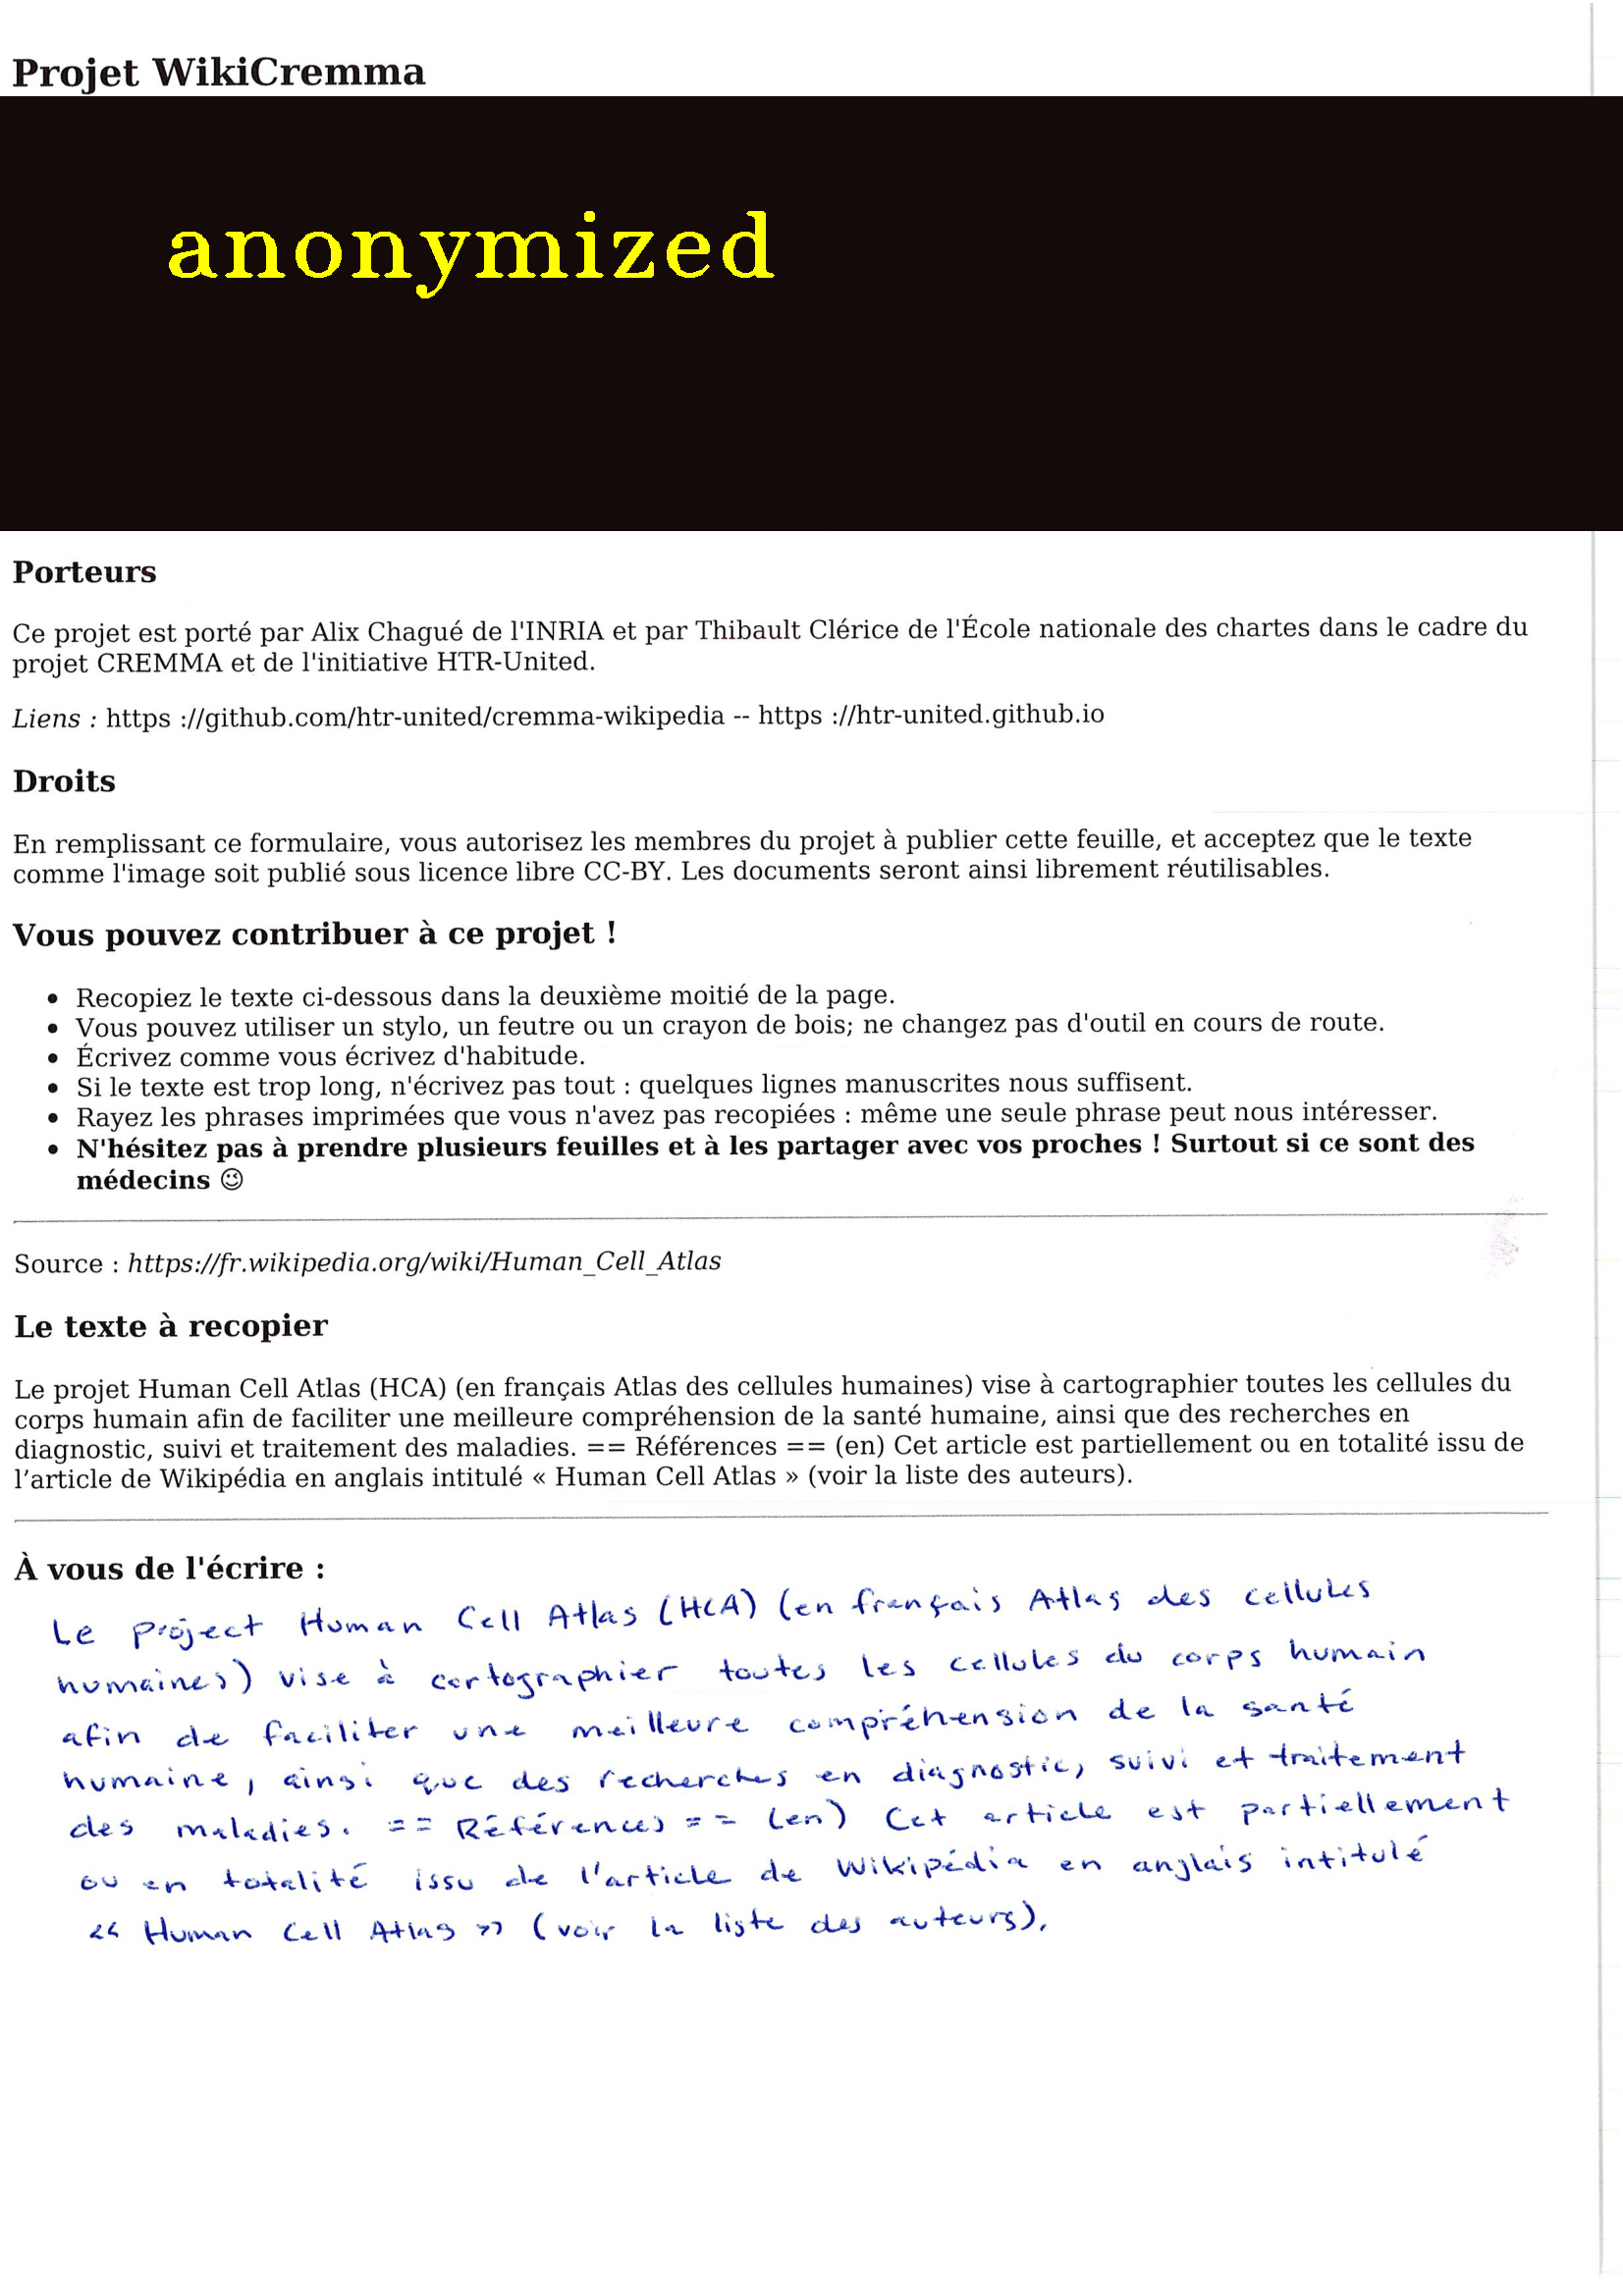 Projet WikiCremma
anonymized
Porteurs
Ce projet est porté par Alix Chagué de l'INRIA et par Thibault Clérice de l'École nationale des chartes dans le cadre du
projet CREMMA et de l'initiative HTR-United.
Liens : https ://github.com/htr-united/cremma-wikipedia -- https ://htr-united.github.io
Droits
En remplissant ce formulaire, vous autorisez les membres du projet à publier cette feuille, et acceptez que le texte
comme l'image soit publié sous licence libre CC-BY. Les documents seront ainsi librement réutilisables.
Vous pouvez contribuer à ce projet !
• Recopiez le texte ci-dessous dans la deuxième moitié de la page.
• Vous pouvez utiliser un stylo, un feutre ou un crayon de bois; ne changez pas d'outil en cours de route.
• Écrivez comme vous écrivez d'habitude.
• Si le texte est trop long, n'écrivez pas tout : quelques lignes manuscrites nous suffisent.
• Rayez les phrases imprimées que vous n'avez pas recopiées : même une seule phrase peut nous intéresser.
• N'hésitez pas à prendre plusieurs feuilles et à les partager avec vos proches ! Surtout si ce sont des
médecins 😉
Source : https://fr.wikipedia.org/wiki/Human_Cell_Atlas
Le texte à recopier
Le projet Human Cell Atlas (HCA) (en français Atlas des cellules humaines) vise à cartographier toutes les cellules du
corps humain afin de faciliter une meilleure compréhension de la santé humaine, ainsi que des recherches en
diagnostic, suivi et traitement des maladies. == Références == (en) Cet article est partiellement ou en totalité issu de
l’article de Wikipédia en anglais intitulé « Human Cell Atlas » (voir la liste des auteurs).
À vous de l'écrire :
Le project Human Cell Atlas (HCA) (en français Atlas des cellules
humaines) vise à cartographier toutes les cellules du corps humain
afin de faciliter une meilleure compréhension de la santé
humaine, ainsi que des recherches en diagnostic, suivi et traitement
des maladies. == Références == (en) Cet article est partiellement
ou en totalité issu de l'article de Wikipédia en anglais intitulé
« Human Cell Atlas » (voir la liste des auteurs).